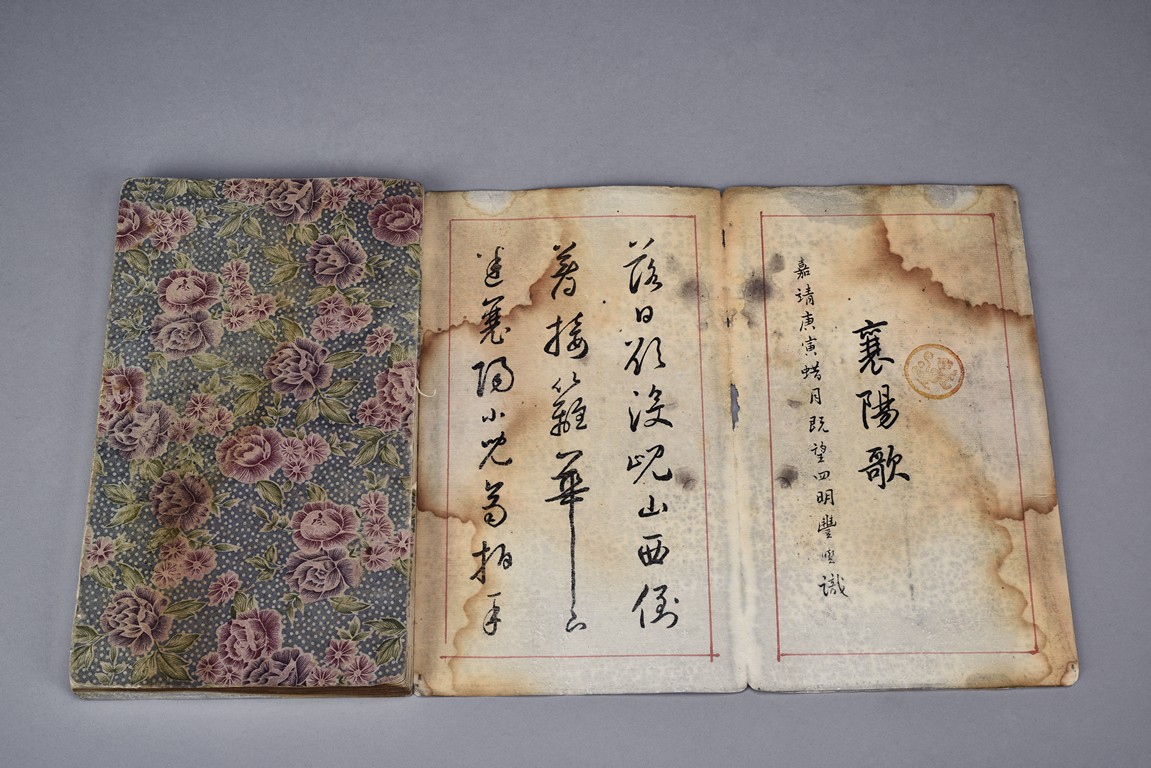 襄陽歌
嘉靖庚寅蜡月既望四明豐熙識
落日欲沒峴山西倒
著接籬華下
迷襄陽小兒齊拍手